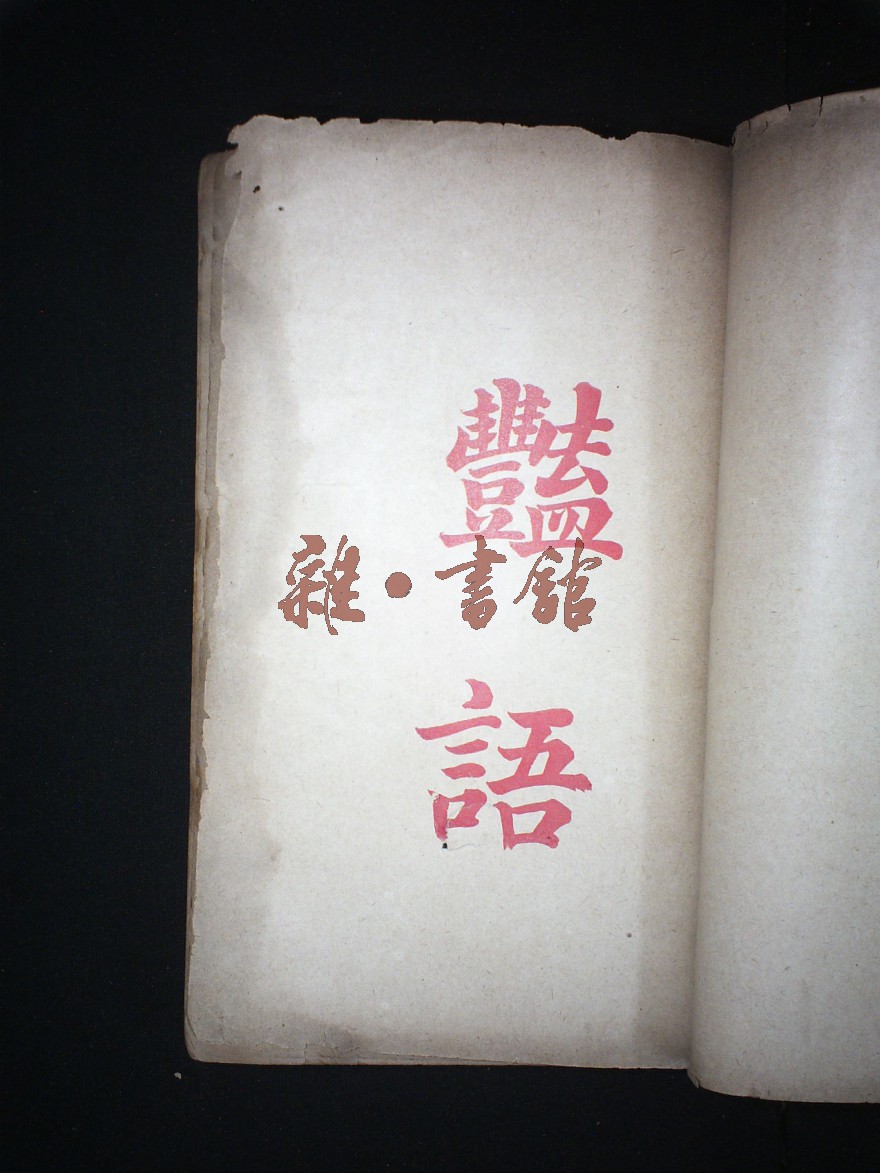 豔
語
雜·書館